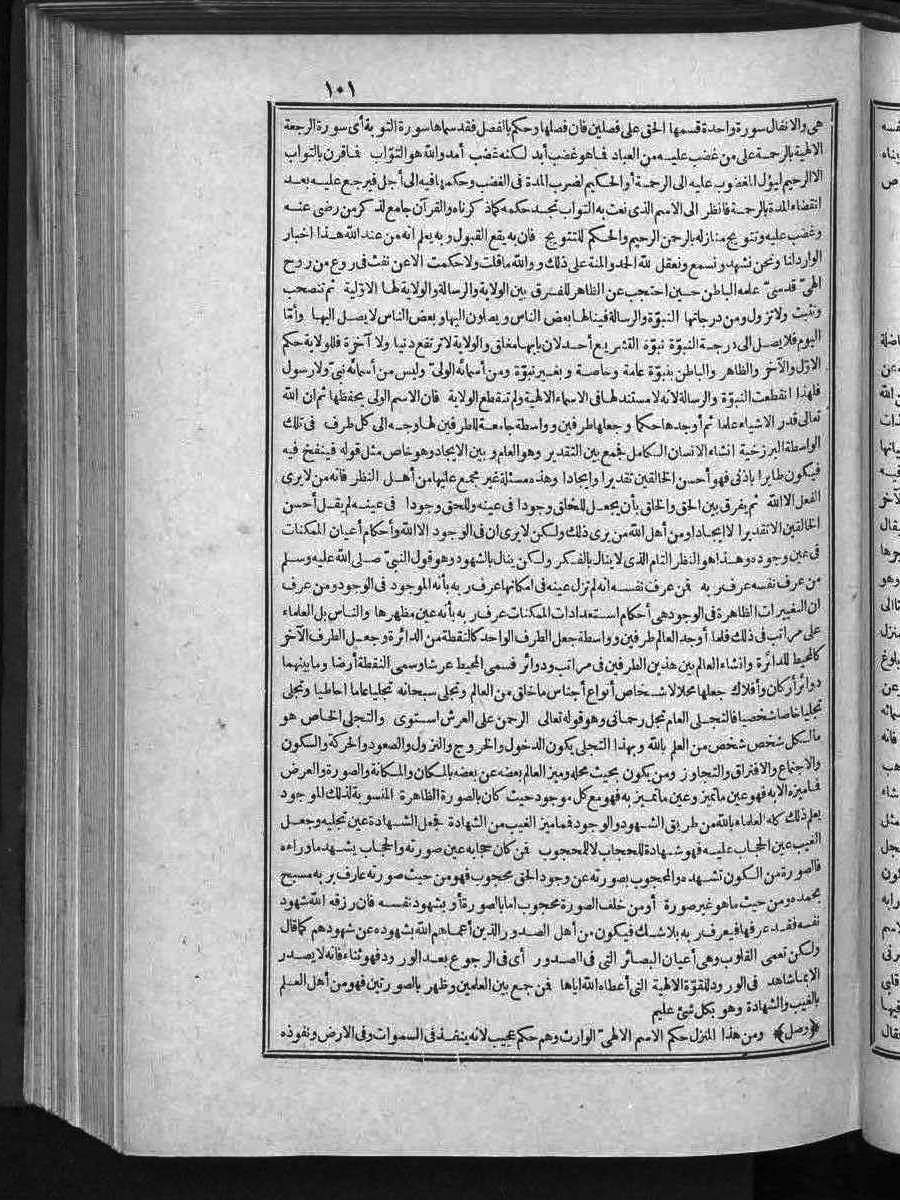 ١٠١
هى والانفال سورة واحدة قسمها الحق على فصلين فان فصلها وحكم بالفصل فقد سماها سورة التوبة أى سورة الرجعة
الالهية بالرحمة على من غضب عليه من العباد فما هو غضب أبد لكنه غضب أمد والله هو التوّاب فما قرن بالتواب
الا الرحيم ليؤل المغضوب عليه الى الرحمة أو الحكيم لضرب المدة فى الغضب وحكمها فيه الى أجل فيرجع عليه بعد
انقضاء المدة بالرحمة فانظر الى الاسم الذى نعت به التواب تجد حكمه كما ذكرناه والقرآن جامع لذكر من رضى عنه
وغضب عليه وتتويج منازله بالرحمن الرحيم والحكم للتتويج فان به يقع القبول وبه يعلم انه من عند الله هذا اخبار
الوارد لنا ونحن نشهد ونسمع ونعقل لله الحد والمنة على ذلك و والله ماقلت ولا حكمت الا عن نفث فى روع من روح
الهىّ قدسىّ علمه الباطن حين احتجب عن الظاهر للفرق بين الولاية والرسالة والولاية لها الاوّلية ثم تنصحب
وتثبت ولا تزول ومن درجاتها النبوّة والرسالة فينالها بعض الناس ويصلون اليها وبعض الناس لا يصل اليها وأمّا
اليوم فلا يصل الى درجة النبوّة نبوّة التشريع أحد لان بابها مغلق والولاية لا ترتفع دنيا ولا آخرة فللولاية حكم
الاوّل والآخر والظاهر والباطن بنبوّة عامة وخاصة وبغير نبوّة ومن أسمائه الولىّ وليس من أسمائه نبىّ ولا رسول
فلهذا انقطعت النبوّة والرسالة لانه لا مستند لها فى الاسماء الالهية ولم تنقطع الولاية فان الاسم الولى يحفظها ثم ان الله
تعالى قدر الاشياء علما ثم أوجدها حكما وجعلها طرفين وواسطة جامعة للطرفين لها وجه الى كل طرف فى تلك
الواسطة البرزخية انشاء الانسان الكامل فجمع بين التقدير وهو العام وبين الايجاد وهو خاص مثل قوله فينفخ فيه
فيكون طايرا باذنى فهو أحسن الخالقين تقديرا وايجادا وهذه مسئلة غير مجمع عليها من أهل النظر فانه من لا يرى
الفعل الا الله ثم يفرق بين الحق والخلق بأن يجعل للخلق وجودا فى عينه وللحق وجودا فى عينه لم يقل أحسن
الخالقين الا تقديرا لا ايجادا ومن أهل الله من يرى ذلك ولكن لا يرى ان فى الوجود الا الله وأحكام أعيان الممكنات
فى عين وجوده وهذا هو النظر التام الذى لا ينال بالفكر ولكن ينال بالشهود وهو قول النبىّ صلى الله عليه وسلم
من عرف نفسه عرف ربه فمن عرف نفسه انه لم تزل عينه فى امكانها عرف ربه بأنه الموجود فى الوجود ومن عرف
ان التغييرات الظاهرة فى الوجود هى أحكام استعدادات الممكنات عرف ربه بأنه عين مظهرها والناس بل العلماء
على مراتب فى ذلك فلما أوجد العالم طرفين وواسطة جعل الطرف الواحد كالنقطة من الدائرة وجعل الطرف الآخر
كالمحيط للدائرة وانشاء العالم بين هذين الطرفين فى مراتب ودوائر فسمى المحيط عرشا وسمى النقطة أرضا وما بينهما
دوائر أركان وأفلاك جعلها محلا لاشخاص أنواع أجناس ما خلق من العالم وتجلى سبحانه تجليا عاما احاطيا وتجلى
تجليا خاصا شخصيا فالتجلى العام تجل رحمانى وهو قوله تعالى الرحمن على العرش استوى والتجلى الخاص هو
ما لكل شخص شخص من العلم بالله وبهذا التجلى يكون الدخول والخروج والنزول والصعود والحركة والسكون
والاجتماع والافتراق والتجاوز ومن يكون بحيث محله وميز العالم بعضه عن بعضه بالمكان والمكانة والصورة والعرض
فما ميزه الا به فهو عين ماتميز وعين ماتميز به فهو مع كل موجود حيث كان بالصورة الظاهرة المنسوبة لذلك الموجود
يعلم ذلك كله العلماء بالله من طريق الشهود والوجود فما ميز الغيب من الشهادة فجعل الشهادة عين تجليه وجعل
الغيب عين الحجاب عليه فهو شهادة للحجاب لا للمحجوب فمن كان حجابه عين صورته والحجاب يشهد ما وراءه
فالصورة من الكون تشهده والمحجوب بصورته عن وجود الحق محجوب فهو من حيث صورته عارف بربه مسبح
بحمده ومن حيث ما هو غير صورة أو من خلف الصورة محجوب اما بالصورة أو بشهود نفسه فان رزقه الله شهود
نفسه فقد عرفها فيعرف ربه بلا شك فيكون من أهل الصدور الذين أعماهم الله بشهوده عن شهودهم كما قال
ولكن تعمى القلوب وهى أعيان البصائر التى فى الصدور أى فى الرجوع بعد الورود فهو ثناء فانه لا يصدر
الا بما شاهد فى الورود للقوّة الالهية التى أعطاه الله اياها فمن جمع بين العلمين وظهر بالصورتين فهو من أهل العلم
بالغيب والشهادة وهو بكل شئ عليم
﴿وصل﴾ ومن هذا المنزل حكم الاسم الالهىّ الوارث وهو حكم عجيب لانه ينفذ فى السموات وفى الارض ونفوذه